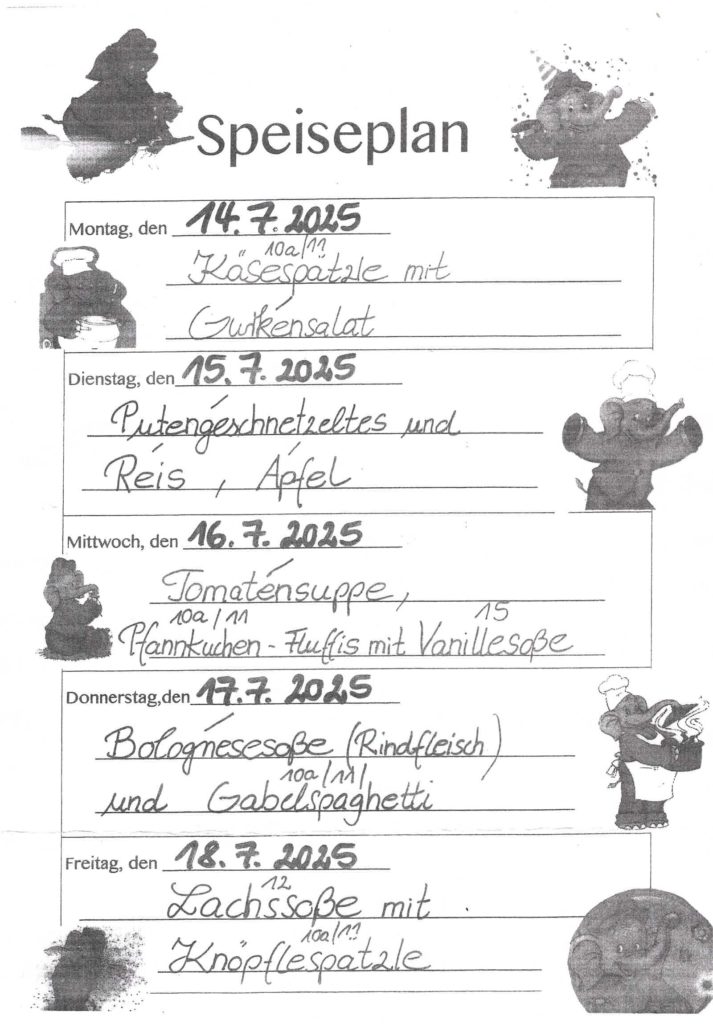 Speiseplan
Montag, den 14.7.2025
10a/11
Käsespätzle mit
Gurkensalat
Dienstag, den 15.7.2025
Putengeschnetzeltes und
Reis, Apfel
Mittwoch, den 16.7.2025
Tomatensuppe,
10a/11 15
Pfannkuchen-Fluffis mit Vanillesoße
Donnerstag, den 17.7.2025
Bolognesesoße (Rindfleisch)
10a/11/
und Gabelspaghetti
Freitag, den 18.7.2025
12
Lachssoße mit
10a/11
Knöpflespätzle